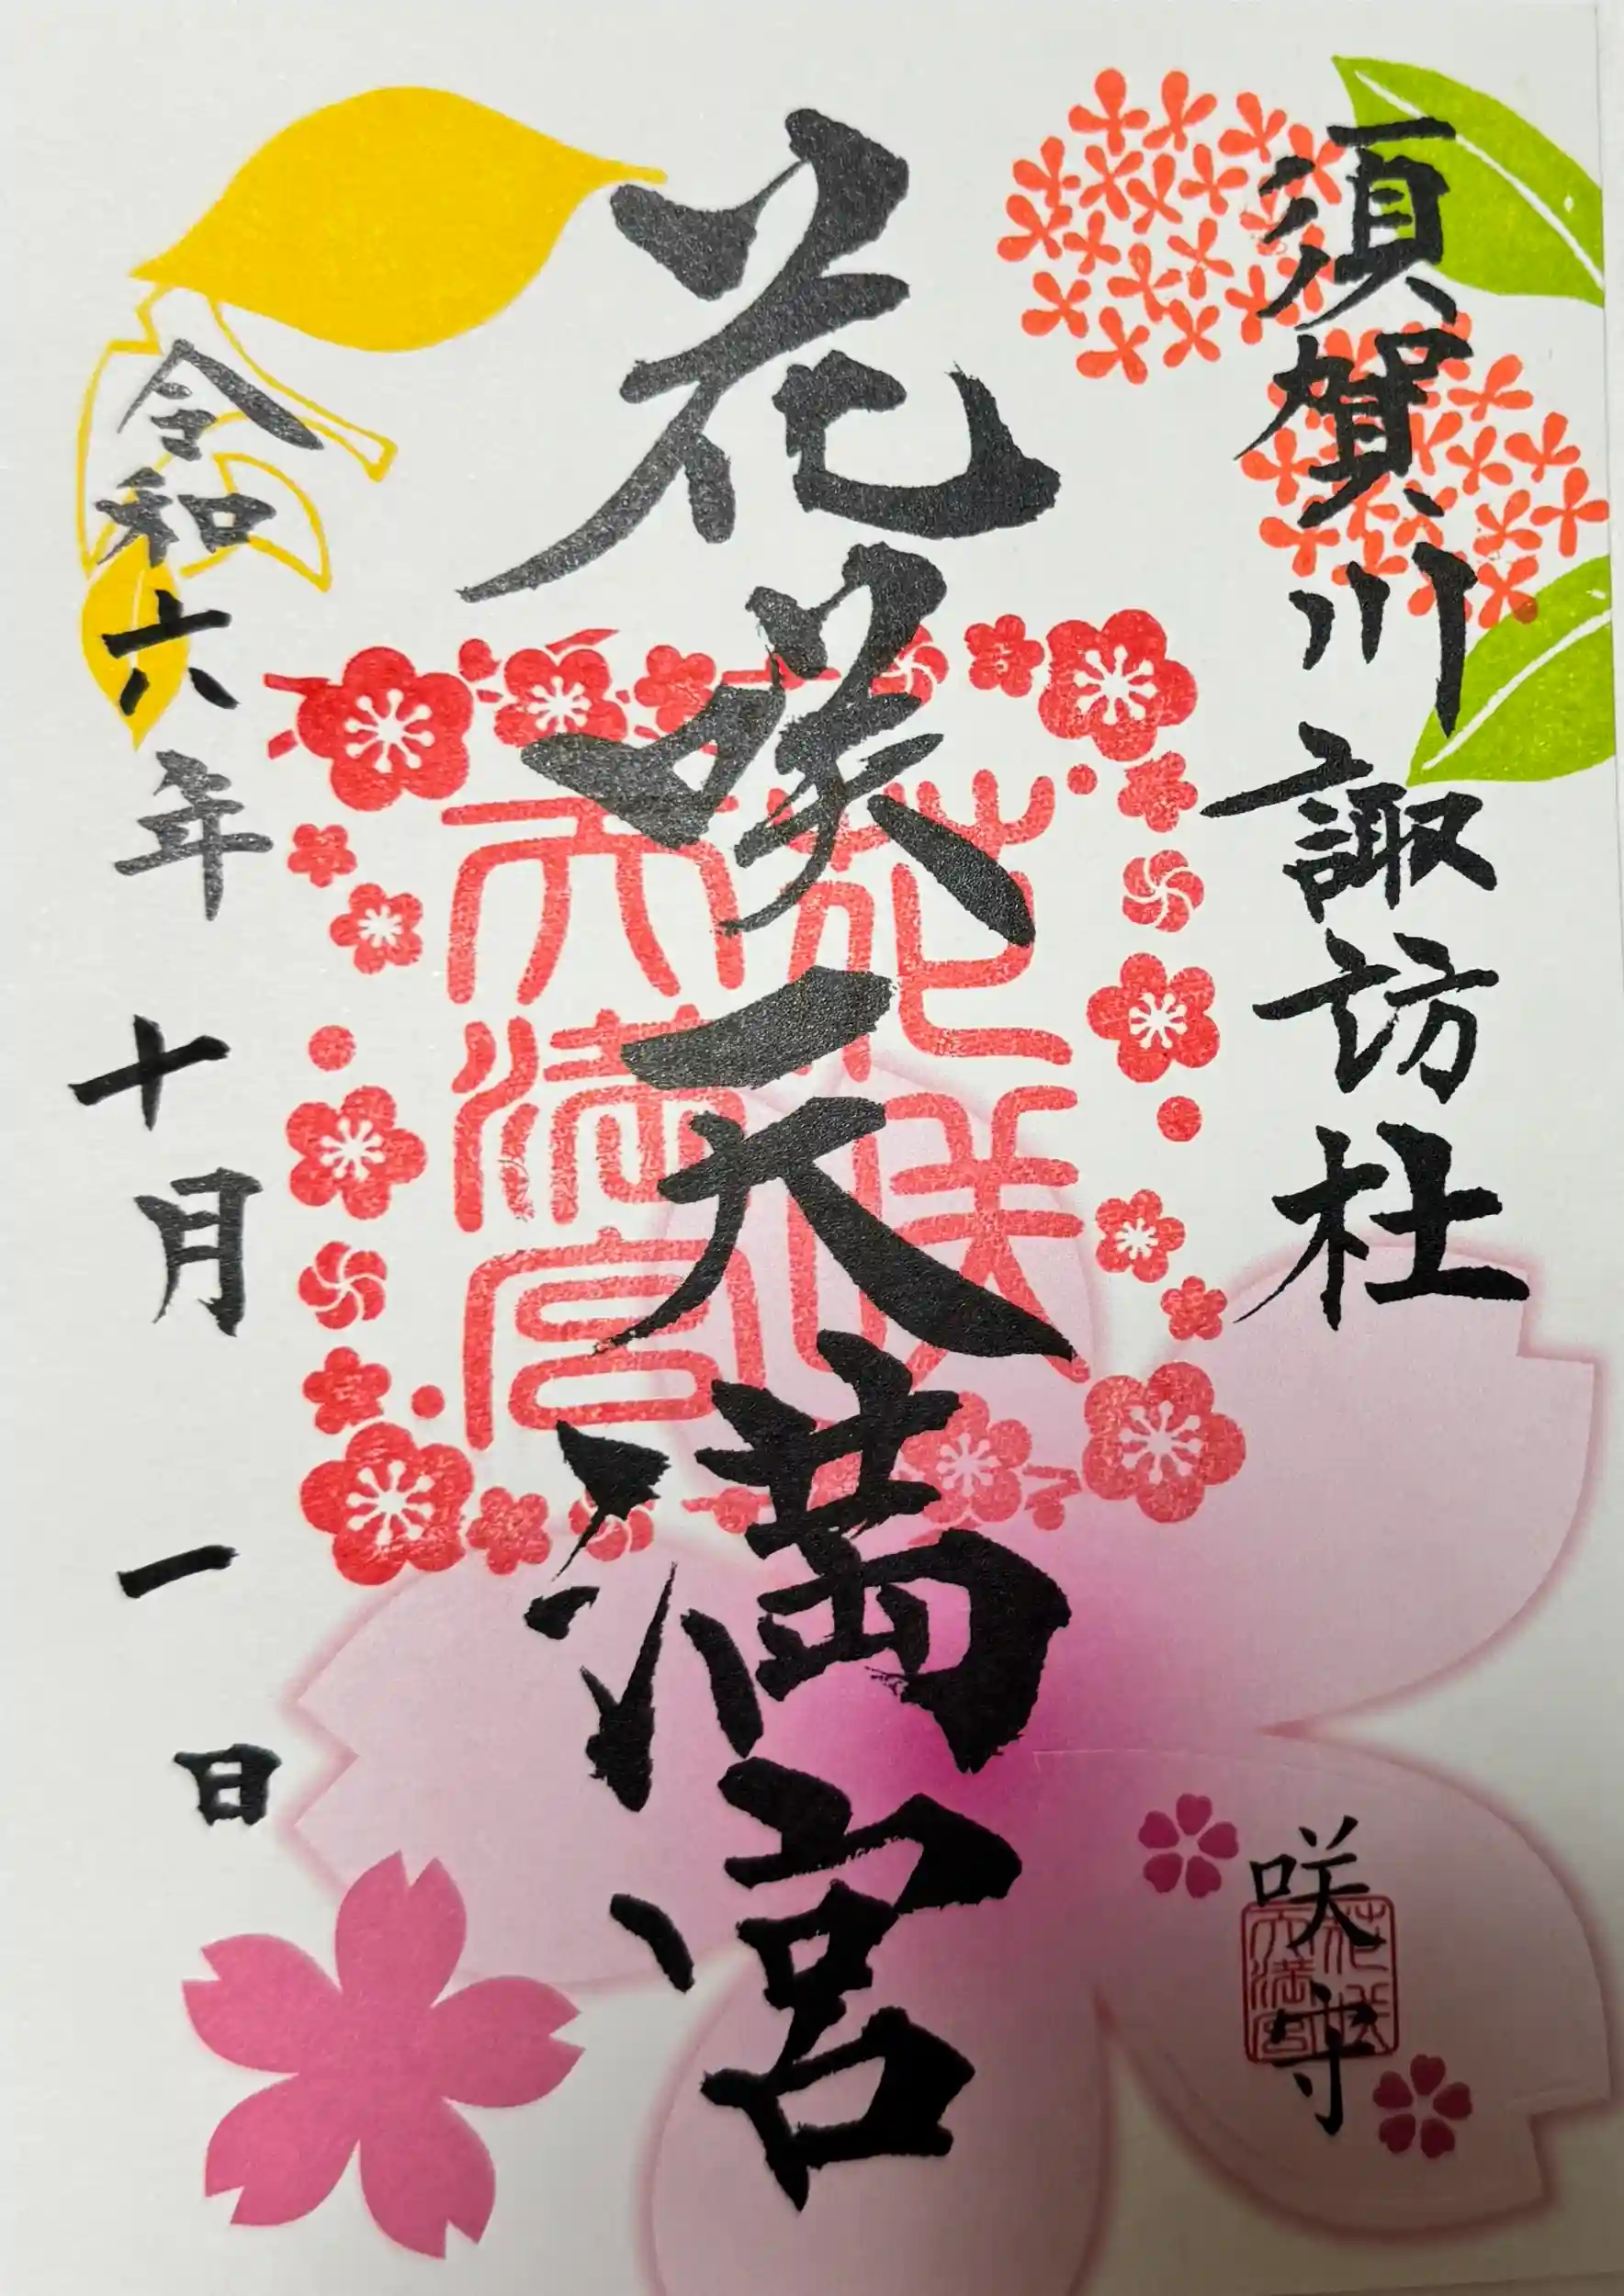 須賀川諏訪杜
花咲天満宮
花咲
天満宮
令和六年十月一日
咲守
花咲
天満宮